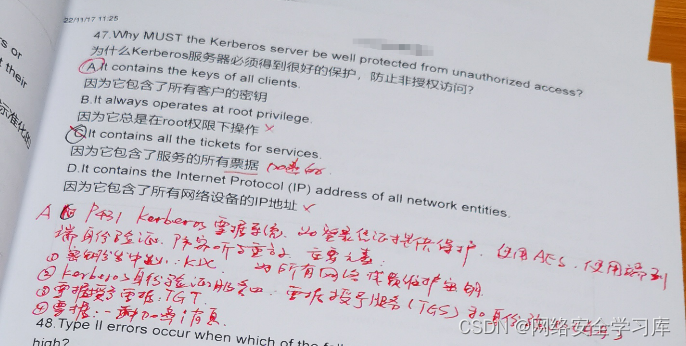 s or
t their
标准化的
22/11/17 11:25
47.Why MUST the Kerberos server be well protected from unauthorized access?
为什么Kerberos服务器必须得到很好的保护，防止非授权访问?
A.It contains the keys of all clients.
因为它包含了所有客户的密钥
B.It always operates at root privilege.
因为它总是在root权限下操作 ×
C.It contains all the tickets for services.
因为它包含了服务的所有票据
D.It contains the Internet Protocol (IP) address of all network entities.
因为它包含了所有网络设备的IP地址 ×
A P431 Kerberos 票据系统. 为登录凭证提供保护. 使用AES, 使用端到
端身份验证, 防窃听与重放. 主要元素:
① 密钥分发中心: KDC. 为所有网络 维护密钥
② Kerberos身份验证服务 : 票据授予服务(TGS)和身份
③ 票据授予票据: TGT
④ 票据: 一种加密消息
48.Type II errors occur when which of the
high?
CSDN @网络安全学习库